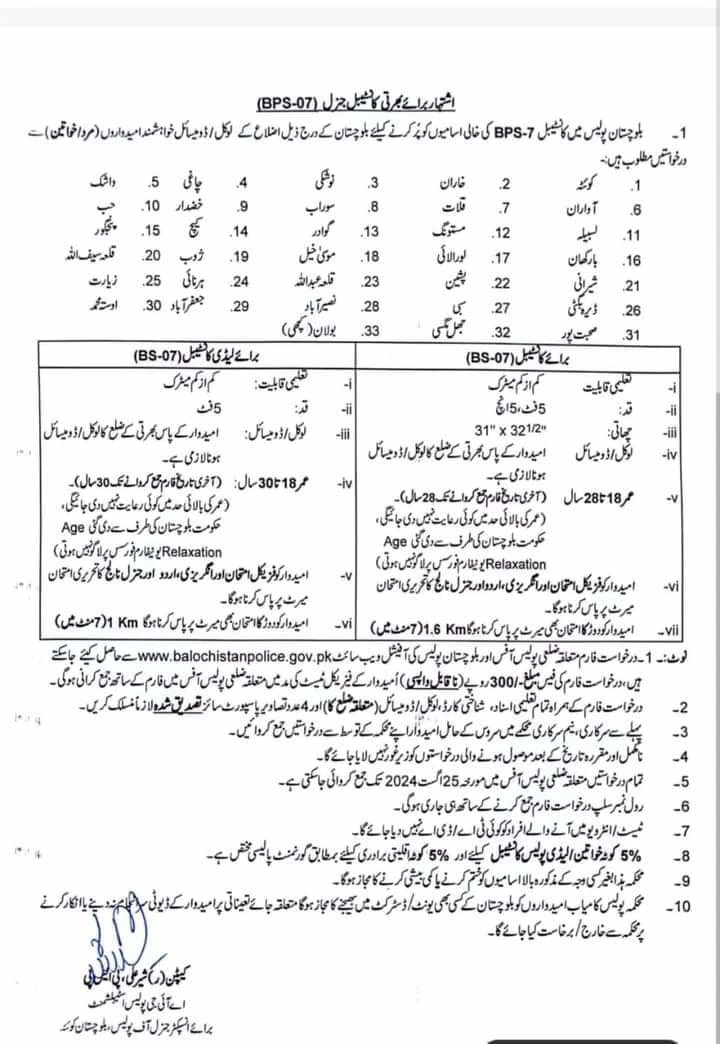 اشتہار برائے بھرتی کانسٹیبل جنرل (BPS-07)
1- بلوچستان پولیس میں کانسٹیبل BPS-7 کی خالی اسامیوں کو پُر کرنے کیلئے بلوچستان کے درج ذیل اضلاع کے لوکل/ڈومیسائل خواہشمند امیدواروں (مرد/خواتین) سے
درخواستیں مطلوب ہیں:-
1. کوئٹہ 2. خاران 3. نوشکی 4. چاغی 5. واشک
6. آواران 7. قلات 8. سوراب 9. خضدار 10. حب
11. لسبیلہ 12. مستونگ 13. گوادر 14. کیچ 15. پنجگور
16. بارکھان 17. لورالائی 18. موسیٰ خیل 19. ژوب 20. قلعہ سیف اللہ
21. شیرانی 22. پشین 23. قلعہ عبداللہ 24. ہرنائی 25. زیارت
26. ڈیرہ بگٹی 27. سبی 28. نصیر آباد 29. جعفر آباد 30. اوستہ محمد
31. صحبت پور 32. جھل مگسی 33. بولان (کچھی)
برائے کانسٹیبل (BS-07)
i- تعلیمی قابلیت کم از کم میٹرک
ii- قد: 5 فٹ، 5 انچ
iii- چھاتی: 31" x 32 1/2"
iv- لوکل/ڈومیسائل امیدوار کے پاس بھرتی کے ضلع کا لوکل/ڈومیسائل
ہونا لازمی ہے۔
v- عمر 18 تا 28 سال (آخری تاریخ فارم جمع کروانے تک 28 سال)۔
(عمر کی بالائی حد میں کوئی رعایت نہیں دی جائیگی،
حکومت بلوچستان کی طرف سے دی گئی Age
Relaxation یونیفارم فورس پر لاگو نہیں ہوتی)
vi- امیدوار کو فزیکل امتحان اور انگریزی، اردو اور جنرل نالج کا تحریری امتحان
میرٹ پر پاس کرنا ہوگا۔
vii- امیدوار کو دوڑ کا امتحان بھی میرٹ پر پاس کرنا ہوگا 1.6 Km (7 منٹ میں)
برائے لیڈی کانسٹیبل (BS-07)
i- تعلیمی قابلیت: کم از کم میٹرک
ii- قد: 5 فٹ
iii- لوکل/ڈومیسائل: امیدوار کے پاس بھرتی کے ضلع کا لوکل/ڈومیسائل
ہونا لازمی ہے۔
iv- عمر 18 تا 30 سال: (آخری تاریخ فارم جمع کروانے تک 30 سال)۔
(عمر کی بالائی حد میں کوئی رعایت نہیں دی جائیگی،
حکومت بلوچستان کی طرف سے دی گئی Age
Relaxation یونیفارم فورس پر لاگو نہیں ہوتی)
v- امیدوار کو فزیکل امتحان اور انگریزی، اردو اور جنرل نالج کا تحریری امتحان
میرٹ پر پاس کرنا ہوگا۔
vi- امیدوار کو دوڑ کا امتحان بھی میرٹ پر پاس کرنا ہوگا 1 Km (7 منٹ میں)
نوٹ:- 1- درخواست فارم متعلقہ ضلعی پولیس آفس اور بلوچستان پولیس کی آفیشل ویب سائٹ www.balochistanpolice.gov.pk سے حاصل کیئے جاسکتے
ہیں، درخواست فارم کی فیس مبلغ -/300 روپے (ناقابل واپسی) امیدوار کے فیزیکل ٹیسٹ کی مد میں متعلقہ ضلعی پولیس آفس میں فارم کے ساتھ جمع کرانی ہوگی۔
2- درخواست فارم کے ہمراہ تمام تعلیمی اسناد، شناختی کارڈ، لوکل/ڈومیسائل (متعلقہ ضلع کا) اور 4 عدد تصاویر پاسپورٹ سائز تصدیق شدہ لازماً منسلک کریں۔
3- پہلے سے سرکاری، نیم سرکاری محکمے میں سروس کے حامل امیدوار اپنے محکمہ کے توسط سے درخواستیں جمع کروائیں۔
4- نامکمل اور مقررہ تاریخ کے بعد موصول ہونے والی درخواستوں کو زیر غور نہیں لایا جائے گا۔
5- تمام درخواستیں متعلقہ ضلعی پولیس آفس میں مورخہ 25 اگست 2024 تک جمع کروائی جاسکتی ہے۔
6- رول نمبر سلپ درخواست فارم جمع کرنے کے ساتھ ہی جاری ہوگی۔
7- ٹیسٹ/انٹرویو میں آنے والے افراد کو کوئی ٹی اے/ڈی اے نہیں دیا جائے گا۔
8- 5% کوٹہ خواتین/لیڈی پولیس کانسٹیبل کیلئے اور 5% کوٹہ اقلیتی برادری کیلئے بمطابق گورنمنٹ پالیسی مختص ہے۔
9- محکمہ ہذا بغیر کسی وجہ کے مذکورہ بالا اسامیوں کو ختم کرنے یا کمی بیشی کرنے کا مجاز ہوگا۔
10- محکمہ پولیس کامیاب امیدواروں کو بلوچستان کے کسی بھی یونٹ/ڈسٹرکٹ میں بھیجنے کا مجاز ہوگا متعلقہ جائے تعیناتی پر امیدوار کے ڈیوٹی نہ دینے یا انکار کرنے
پر محکمہ سے خارج/برخاست کیا جائے گا۔
کیپٹن (ر) شیر علی، پی ایس پی
اے آئی جی پولیس اسٹیبلشمنٹ
برائے انسپکٹر جنرل آف پولیس، بلوچستان کوئٹہ